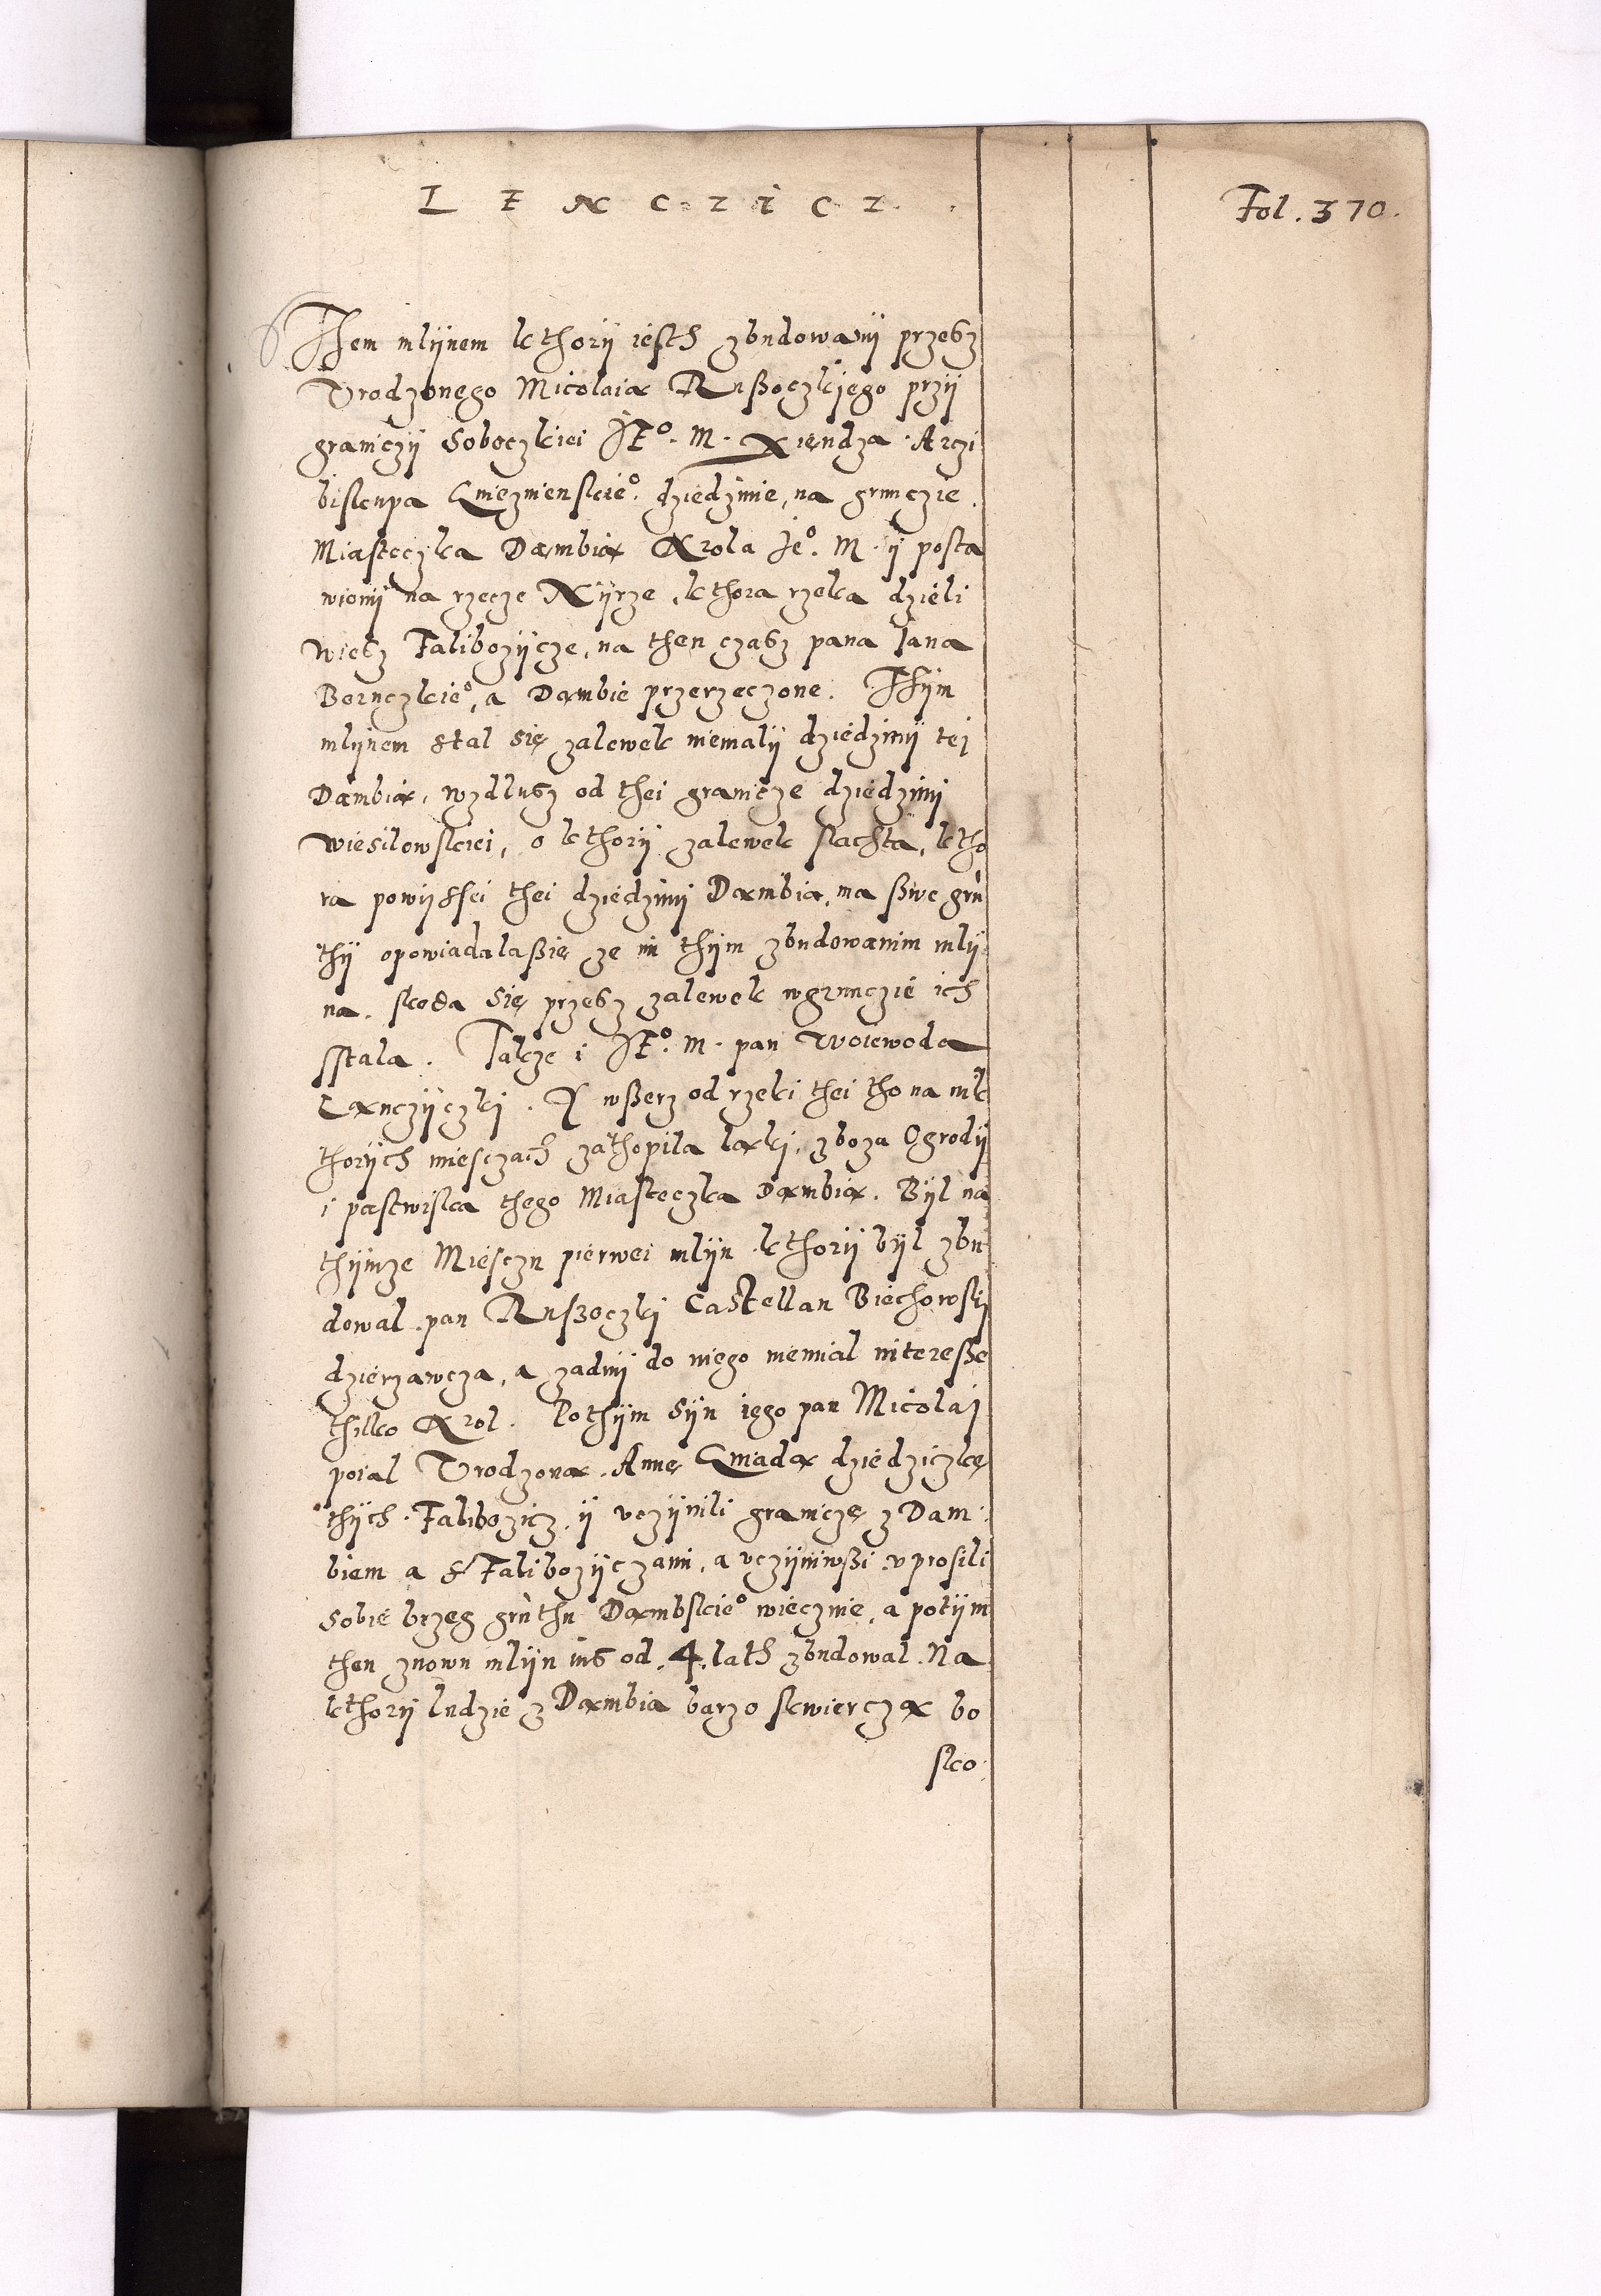 LENCZICZ
Fol. 370.
Them mlÿnem kthorÿ iesth zbudowanÿ przesz
Vrodzonego Micolaia Rußoczkjego przÿ
graniczÿ Soboczkiei JE°. M. Xiendza Arczi
biskupa Gnieznienskie°. dziedzinie, na grunczie
Miasteczka Dambia Krola Je°. M. ÿ posta
wionÿ na rzecze Nÿrze, kthora rzeka dzieli
wiesz Falibozÿcze, na then czasz pana Jana
Boruczkie°, a Dambie przerzeczone. Thÿm
mlÿnem stal się zalewek niemalÿ dziedzinÿ tej
Dambia, wzdlusz od thei granicze dziedzinÿ
wiesilowskiei, o kthorÿ zalewek slachta, ktho
ra powÿssei thei dziedzinÿ Dambia, ma ßwe grū
thÿ opowiadalaßię ze in thÿm zbudowanim mlÿ
na. skoda się przesz zalewek wgrunczie ich
sstala. Takze i JE°. M. pan Woiewoda
Lanczÿczkj. J wßerz od rzeki thei tho na nik
thorÿch miesczach zathopila laki, zboza Ogrodÿ
i pastwiska thego Miasteczka Dambia. Bÿl na
thÿmze Miesczu pierwei mlÿn kthorÿ bÿl zbu
dowal pan Rußoczkj Castellan Biechowskj
dzierzawcza, a zadnÿ do niego niemial interesße
thilko Krol. Pothÿm Sÿn iego pan Micolaj
poial Vrodzona Annę Gniada dziedziczkę
thÿch Falibozicz, ÿ vczÿnili graniczę z Dam
biem a s Falibozÿczami, a vczÿniwßi vprosili
sobie brzeg grūthu Dambskie° wiecznie, a potÿm
then znowu mlÿn ius od 4. lath zbudowal. Na
kthorÿ ludzie z Dambia barzo skwiercza bo
sko